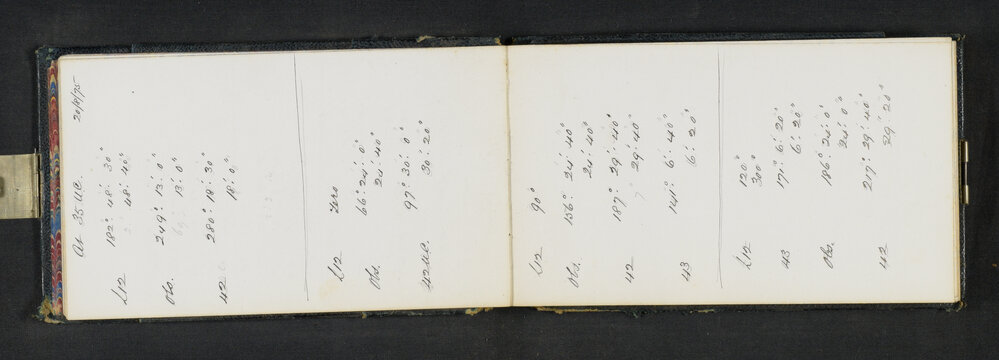 At 35 U.C. 20/9/75
L12 182° 48' 30"
48' 40"
Obs. 249° 13' 0"
13' 0"
42 280° 18' 30"
18' 0"
L12 Zero
Obs. 66° 24' 0"
24' 40"
42 U.C. 97° 30' 0"
30' 20"
L12 90°
Obs. 156° 24' 40"
24' 40"
42 187° 29' 40"
29' 40"
43 141° 6' 40"
6' 20"
L12 120°
300°
43 171° 6' 20"
6' 20"
Obs. 186° 24' 0"
24' 0"
42 217° 29' 40"
29' 20"